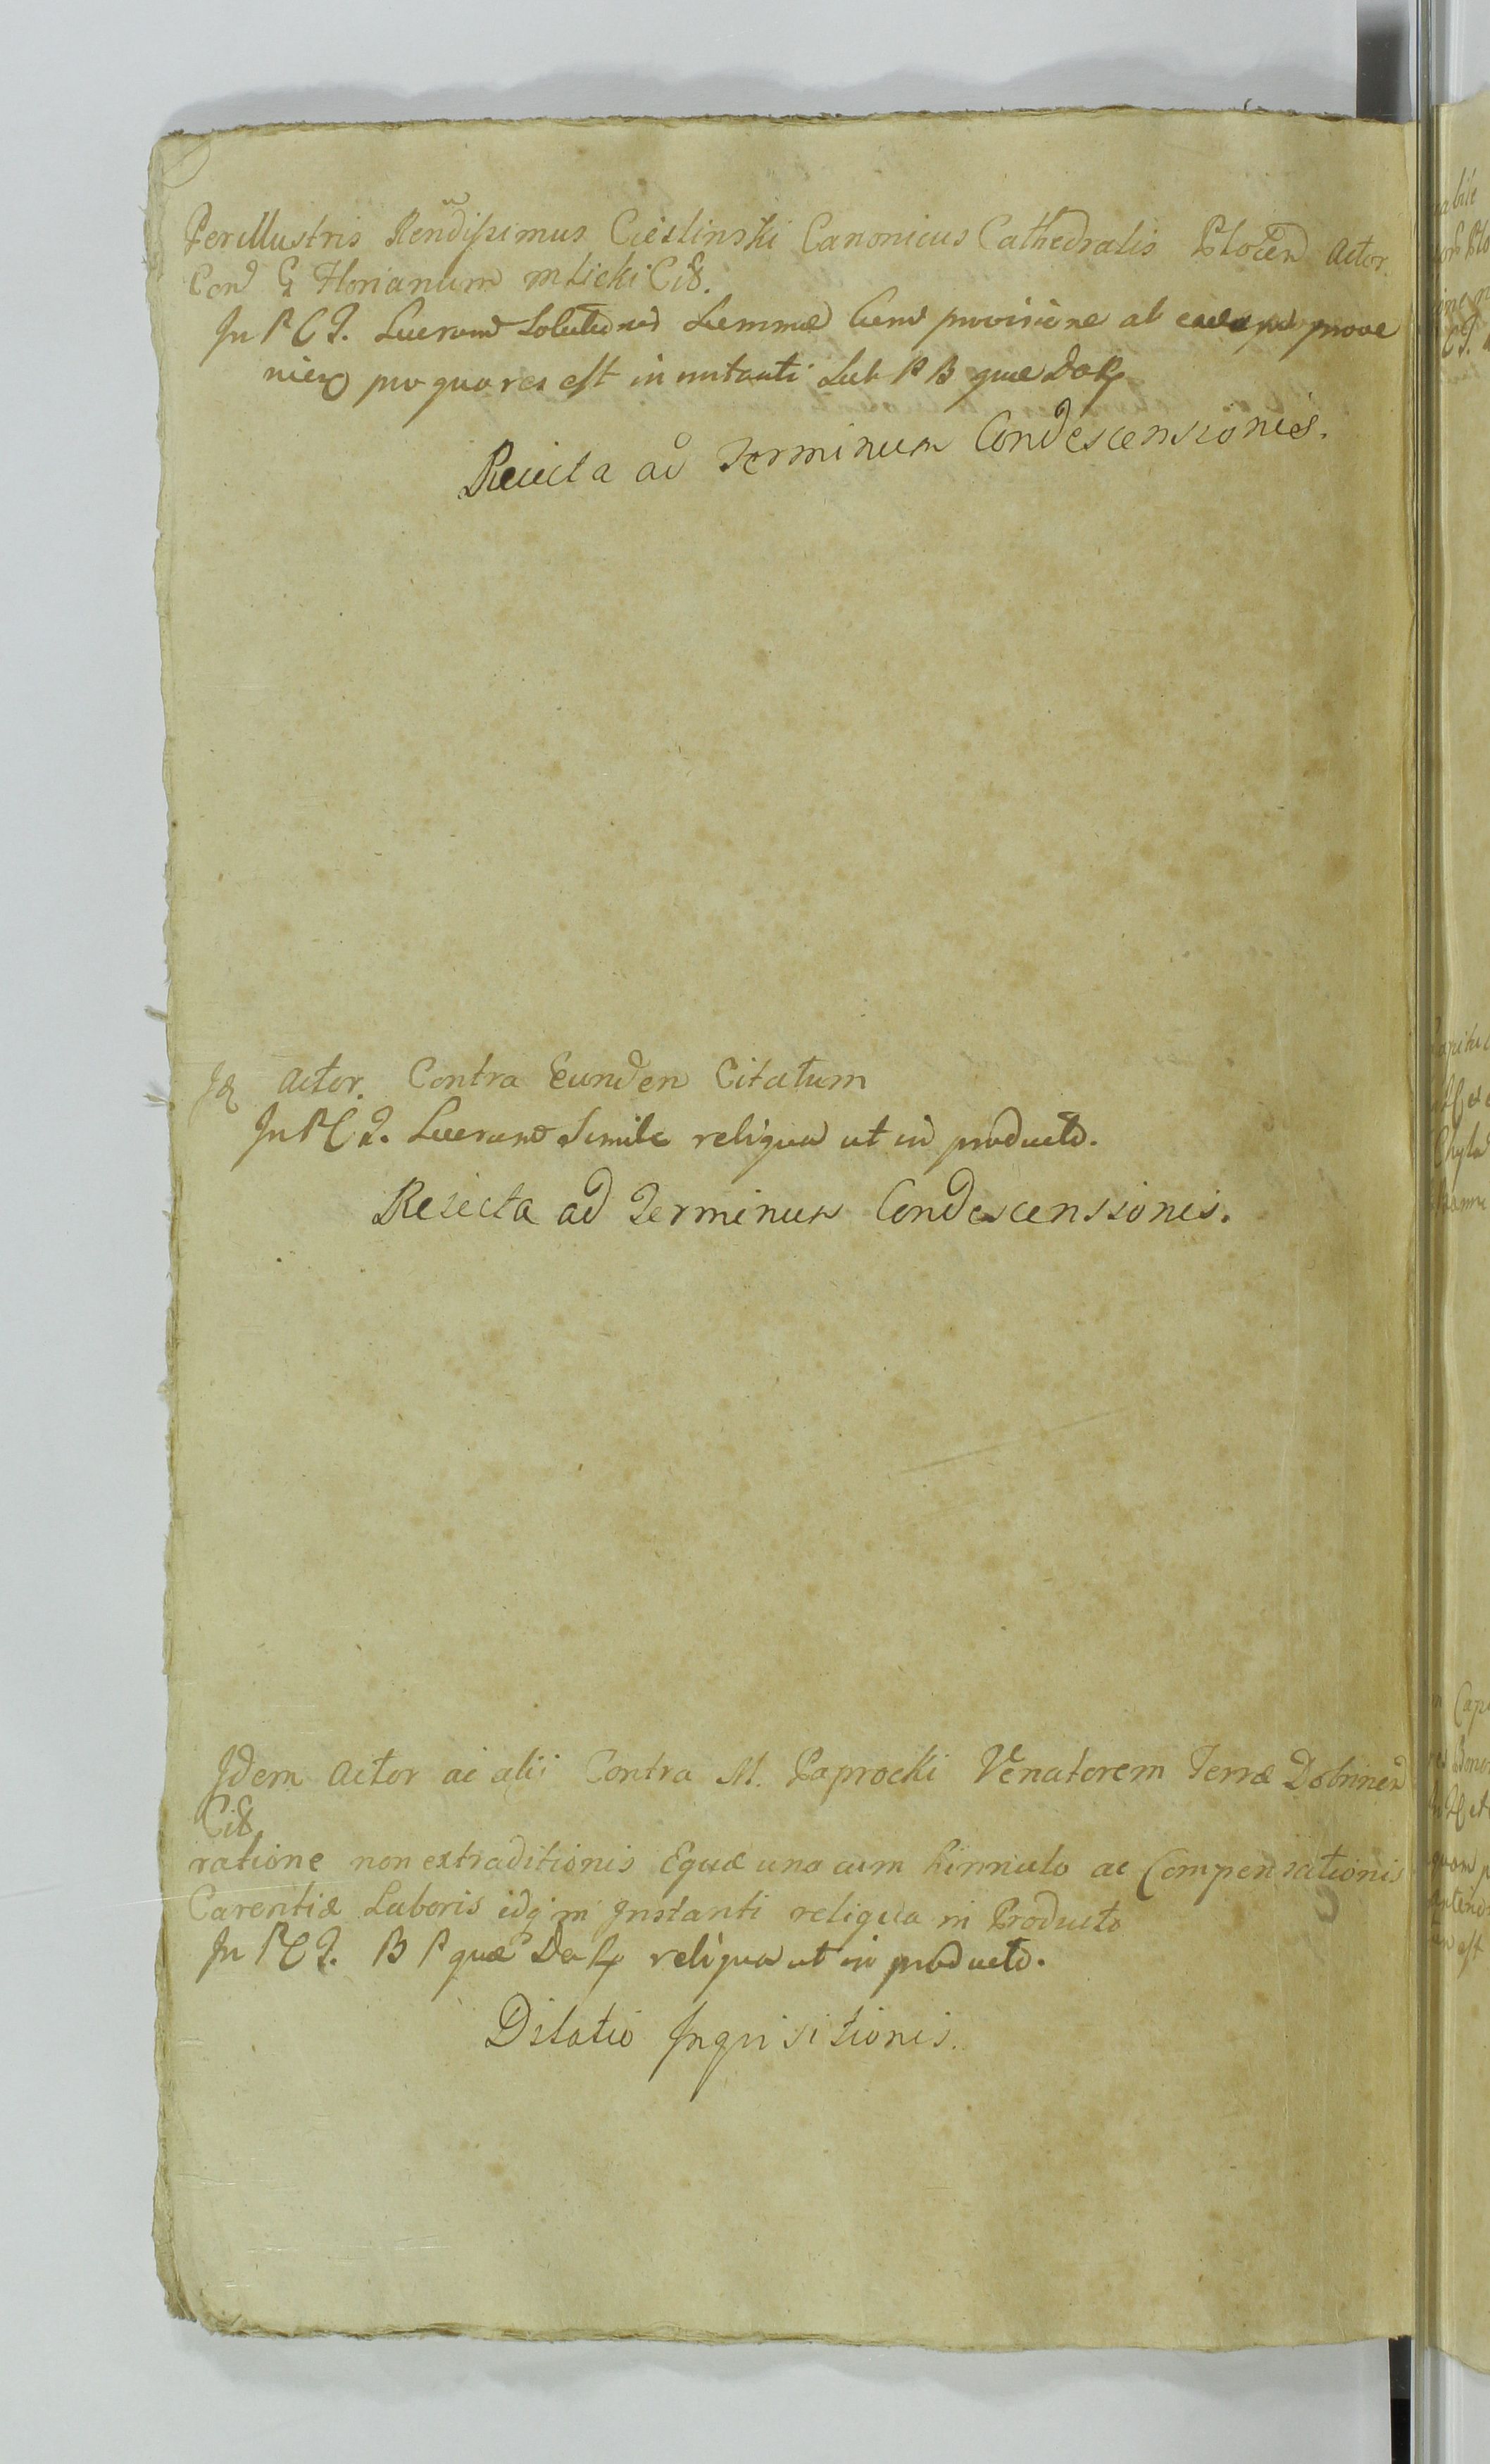 Perillustris Rendissimus Cieslinski Canonicus Cathedralis Plocen Actor.
Con G Florianum Mlicki Cit.
In P C T. Lucrum Solutionis Summae Cum provisione ab eadem prove
nien pro qua res est in instanti Sub P B quae
Reiecta ad Terminum Condescensionis.
Id Actor. Contra Eunden Citatum
In P C T. Lucrum Simile reliqua ut in producto.
Reiecta ad Terminum Condescensionis.
Idem Actor ac alii Contra M. Paprocki Venatorem Terrae Dobrinen
Cit
ratione non extraditionis Equae una cum hinnulo ac Compensationis
Carentiae Laboris idq in Instanti reliqua in Producto
In P C T. B P quae reliqua ut in producto.
Dilatio Inquisitionis.